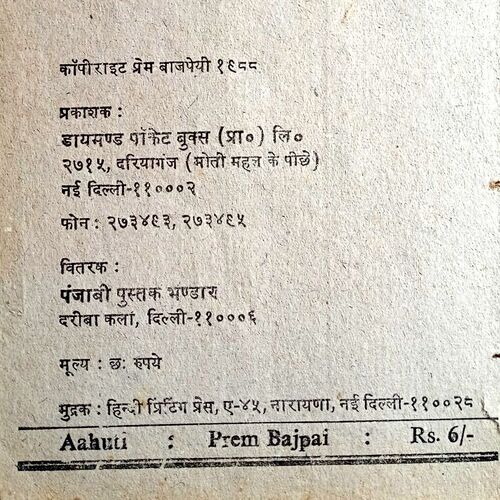 कॉपीराइट प्रेम बाजपेयी १९८८
प्रकाशक :
डायमण्ड पॉकेट बुक्स (प्रा०) लि०
२७१५, दरियागंज (मोती महल के पीछे)
नई दिल्ली-११०००२
फोन : २७३४९३, २७३४९५
वितरक :
पंजाबी पुस्तक भण्डार
दरीबा कलां, दिल्ली-११०००६
मूल्य : छः रुपये
मुद्रक : हिन्दी प्रिंटिंग प्रेस, ए-४५, नारायणा, नई दिल्ली-११००२८
Aahuti : Prem Bajpai : Rs. 6/-